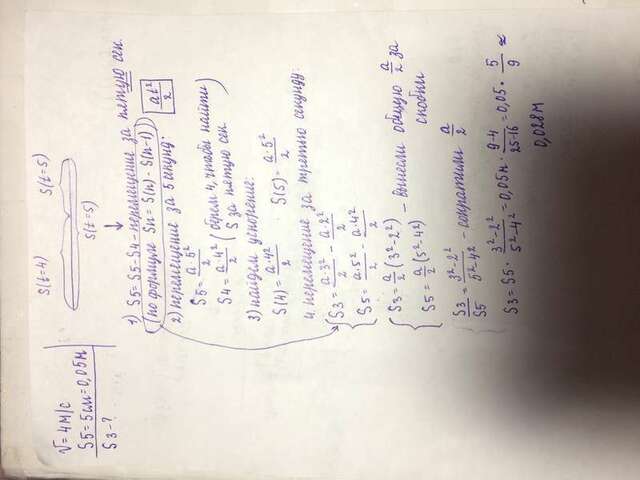 v=4м/с
S5=5см=0,05м
S3-?
S(t=4) S(t=5)
S(t=5)
1) S5=S5-S4-перемещение за пятую сек.
(по формуле Sn=S(n)-S(n-1)) at²/2
2) перемещение за 5 секунд:
S5=a·5²/2
S4=a·4²/2 (берем 4, чтобы найти S за пятую сек)
3) найдем ускорение:
S(4)=a·4²/2 S(5)=a·5²/2
4. перемещение за третью секунду:
S3=a·3²/2-a·2²/2
S5=a·5²/2-a·4²/2
S3=a/2(3²-2²) - вынесли общую a/2 за скобки
S5=a/2(5²-4²)
S3/S5=3²-2²/5²-4²-сократили a/2
S3=S5·3²-2²/5²-4²=0,05м·9-4/25-16=0,05·5/9≈
0,028м